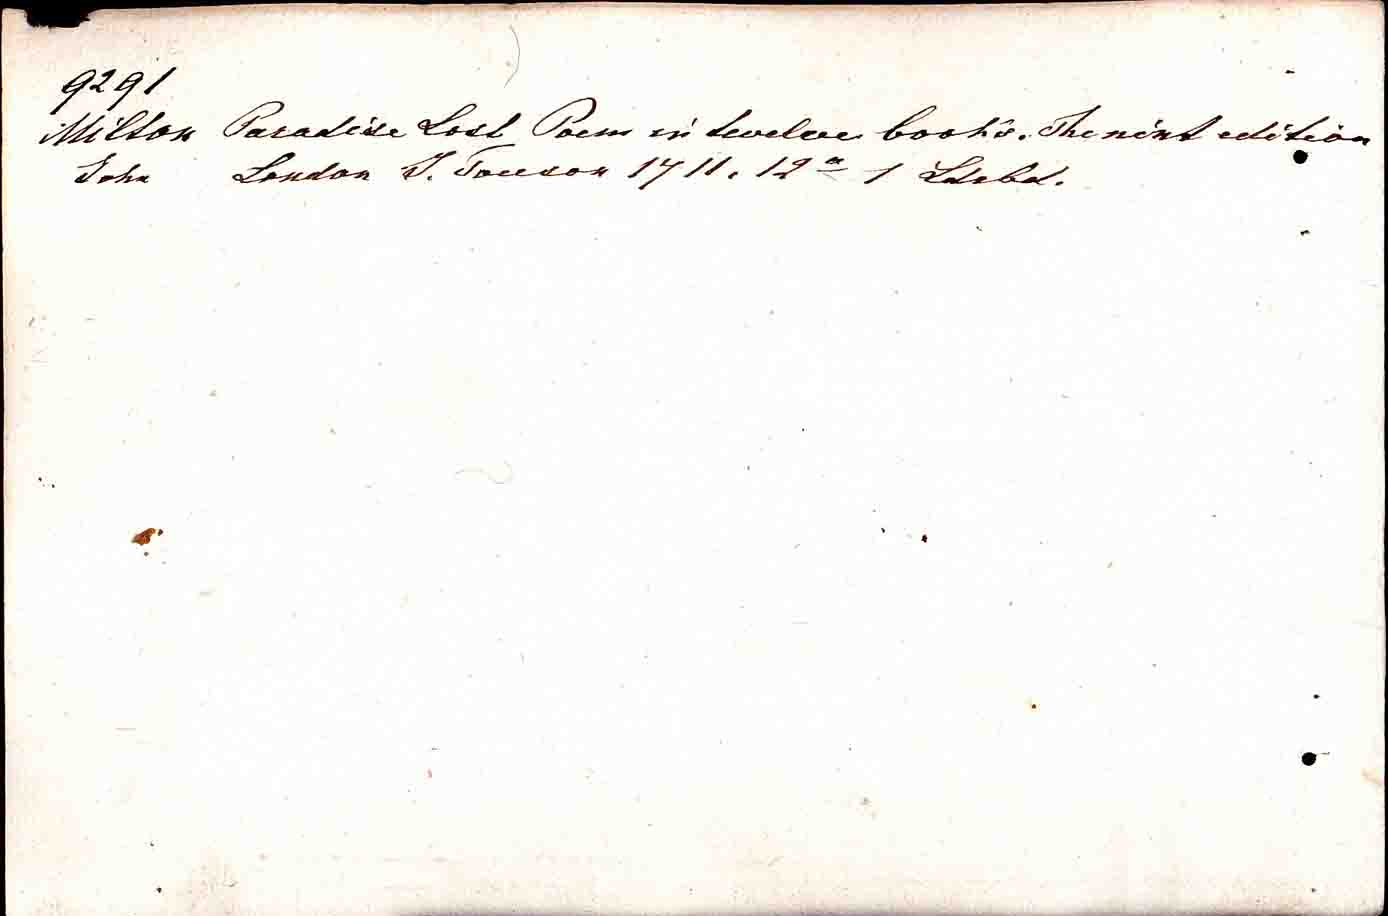 9291
Milton Paradise Lost Poem in twelve books. The nint edition
John London J. Tonson 1711. 12º 1 Ldrbd.